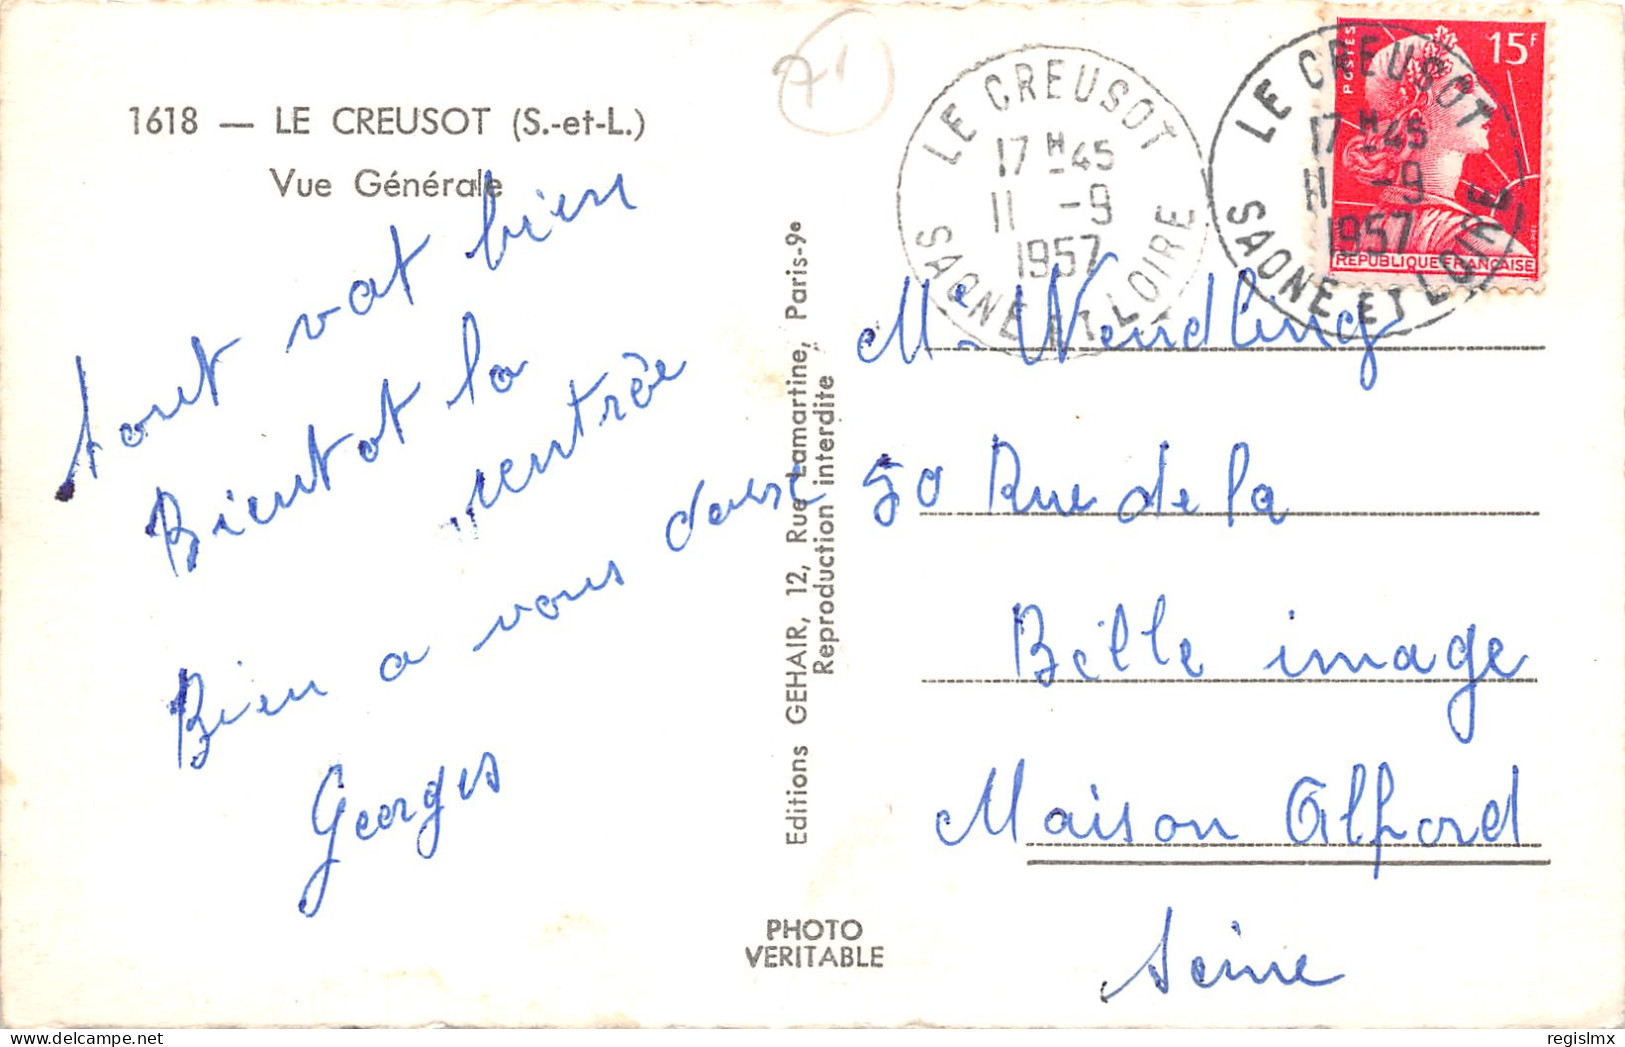 1618 — LE CREUSOT (S.-et-L.)
Vue Générale
tout vat bien
Bientot la
rentrée
Bien a vous deux
Georges
Editions GEHAIR, 12, Rue Lamartine, Paris-9e
Reproduction interdite
PHOTO
VERITABLE
71
LE CREUSOT
17 H 45
11 -9
1957
SAONE ET LOIRE
LE CREUSOT
17 H 45
11 -9
1957
SAONE ET LOIRE
POSTES
15F
REPUBLIQUE FRANÇAISE
M. Wendling
50 Rue de la
Belle image
Maison Alford
Seine
regislmx